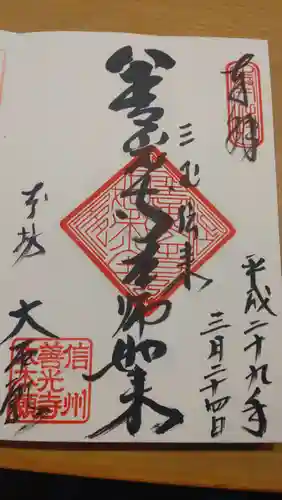 奉拝
平成二十九年
三月二十四日
三国伝来
善光寺本師如来
大本願
信州
善光寺
大本願